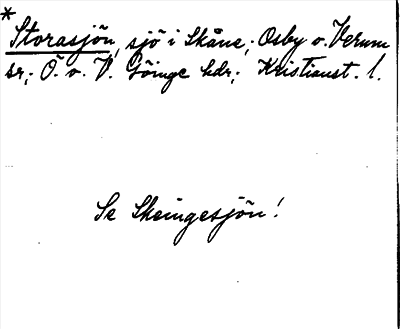 *
Storasjön, sjö i Skåne; Osby o. Verum
sr; Ö. o. V. Göinge hdr; Kristianst. l.
Se Skeingesjön!